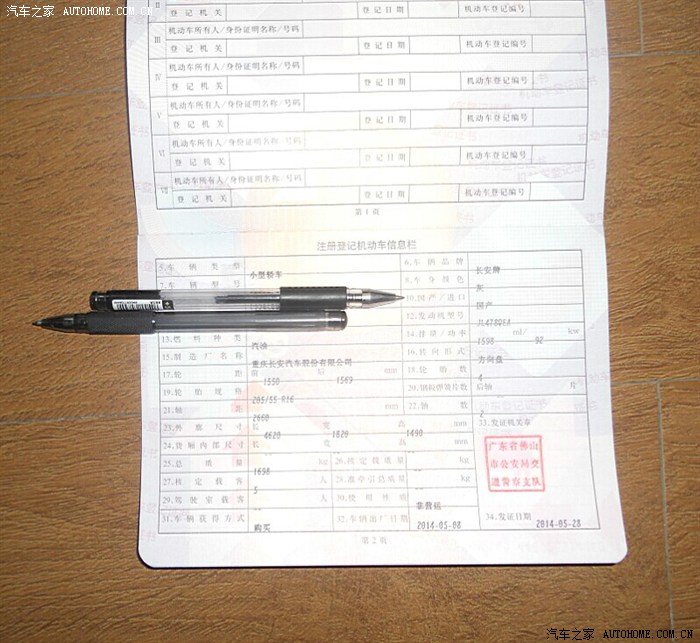 汽车之家 AUTOHOME.COM.CN
II 登 记 机 关 登 记 日 期 机动车登记编号
III 机动车所有人/身份证明名称/号码
登 记 机 关 登 记 日 期 机动车登记编号
IV 机动车所有人/身份证明名称/号码
登 记 机 关 登 记 日 期 机动车登记编号
V 机动车所有人/身份证明名称/号码
登 记 机 关 登 记 日 期 机动车登记编号
VI 机动车所有人/身份证明名称/号码
登 记 机 关 登 记 日 期 机动车登记编号
VII 机动车所有人/身份证明名称/号码
登 记 机 关 登 记 日 期 机动车登记编号
第 1 页
注册登记机动车信息栏
5.车 辆 类 型 小型轿车 6.车 辆 品 牌 长安牌
7.车 辆 型 号 8.车 身 颜 色 灰
10.国产/进口 国产
12.发动机型号 JL478QEA
13.燃 料 种 类 汽油 14.排量/功率 1598 ml/ 92 kw
15.制造厂名称 重庆长安汽车股份有限公司 16.转向形式 方向盘
17.轮 距 前 1530 后 1569 mm 18.轮 胎 数 4
19.轮 胎 规 格 205/55 R16 20.钢板弹簧片数 后轴 片
21.轴 距 2660 mm 22.轴 数 2
23.外 廓 尺 寸 长 4620 宽 1820 高 1490 mm 33.发证机关章
24.货厢内部尺寸 长 宽 高 mm
25.总 质 量 1698 kg 26.核定载质量 kg
27.核 定 载 客 5 人 28.准牵引总质量 kg
29.驾 驶 室 载 客 人 30.使 用 性 质 非营运
31.车辆获得方式 购买 32.车辆出厂日期 2014-05-08 34.发证日期 2014-05-28
广东省佛山
市公安局交
通警察支队
第 2 页
汽车之家 AUTOHOME.COM.CN